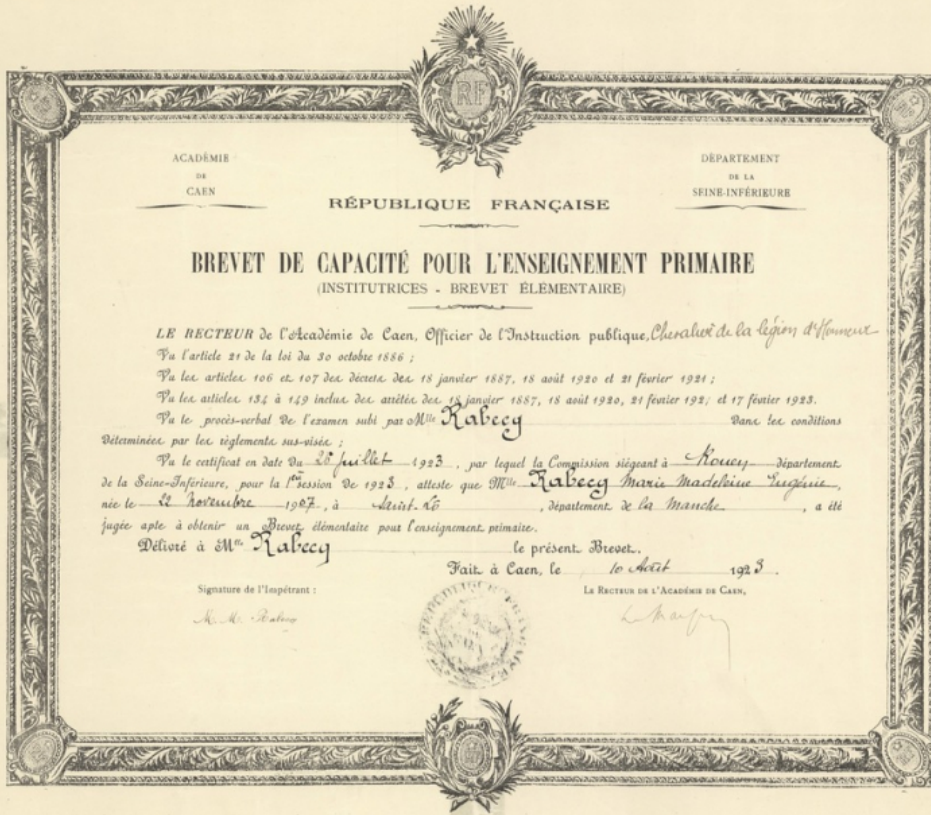 RF
ACADÉMIE
DE
CAEN
DÉPARTEMENT
DE LA
SEINE-INFÉRIEURE
RÉPUBLIQUE FRANÇAISE
BREVET DE CAPACITÉ POUR L'ENSEIGNEMENT PRIMAIRE
(INSTITUTRICES - BREVET ÉLÉMENTAIRE)
LE RECTEUR de l'Académie de Caen, Officier de l'Instruction publique, Chevalier de la légion d'Honneur
Vu l'article 21 de la loi du 30 octobre 1886 ;
Vu les articles 106 et 107 des décrets des 18 janvier 1887, 18 août 1920 et 21 février 1921 ;
Vu les articles 134 à 149 inclus des arrêtés des 18 janvier 1887, 18 août 1920, 21 février 192; et 17 février 1923.
Vu le procès-verbal de l'examen subi par Mlle Rabecq dans les conditions
déterminées par les règlements sus-visés ;
Vu le certificat en date du 26 juillet 1923, par lequel la Commission siégeant à Rouen département
de la Seine-Inférieure, pour la 1ère session de 1923, atteste que Mlle Rabecq Marie Madeleine Eugénie,
née le 22 Novembre 1907, à Saint-Lô, département de la Manche, a été
jugée apte à obtenir un Brevet élémentaire pour l'enseignement primaire.
Délivré à Mlle Rabecq le présent Brevet.
Fait à Caen, le 10 Août 1923.
Signature de l'Impétrant :
LE RECTEUR DE L'ACADÉMIE DE CAEN,
M. M. Rabecq